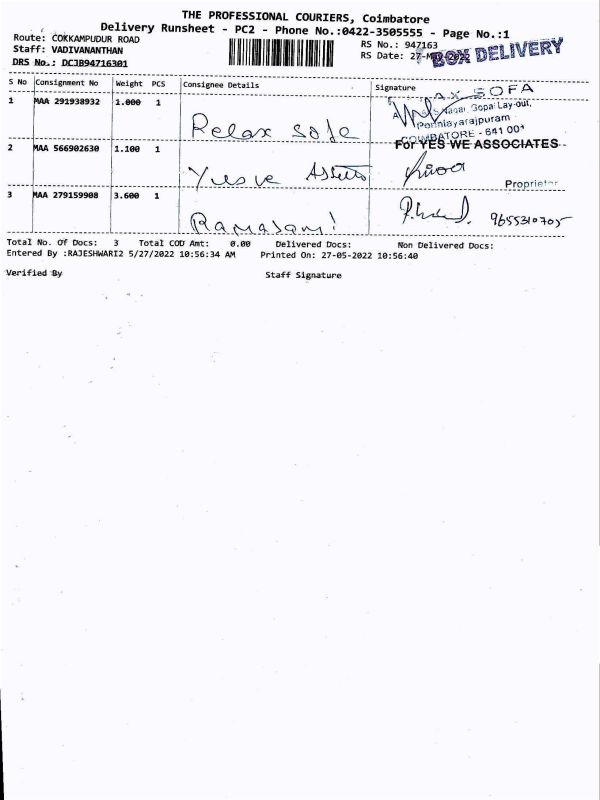 THE PROFESSIONAL COURIERS, Coimbatore
Delivery Runsheet - PC2 - Phone No.:0422-3505555 - Page No.:1
Route: COKKAMPUDUR ROAD
RS No.: 947163
BOX DELIVERY
Staff: VADIVANANTHAN
RS Date: 27-May-2022
DRS No.: DCJB94716301
S No Consignment No Weight PCS Consignee Details Signature
1 MAA 291938932 1.000 1 Relax Sofa
AX SOFA
Gopal Lay-out,
COIMBATORE - 641 001
2 MAA 566902630 1.100 1
For YES WE ASSOCIATES
Proprietor
3 MAA 279159908 3.600 1 Ramasami
9655310705
Total No. Of Docs: 3 Total COD Amt: 0.00 Delivered Docs: Non Delivered Docs:
Entered By :RAJESHWARI2 5/27/2022 10:56:34 AM Printed On: 27-05-2022 10:56:40
Verified By Staff Signature